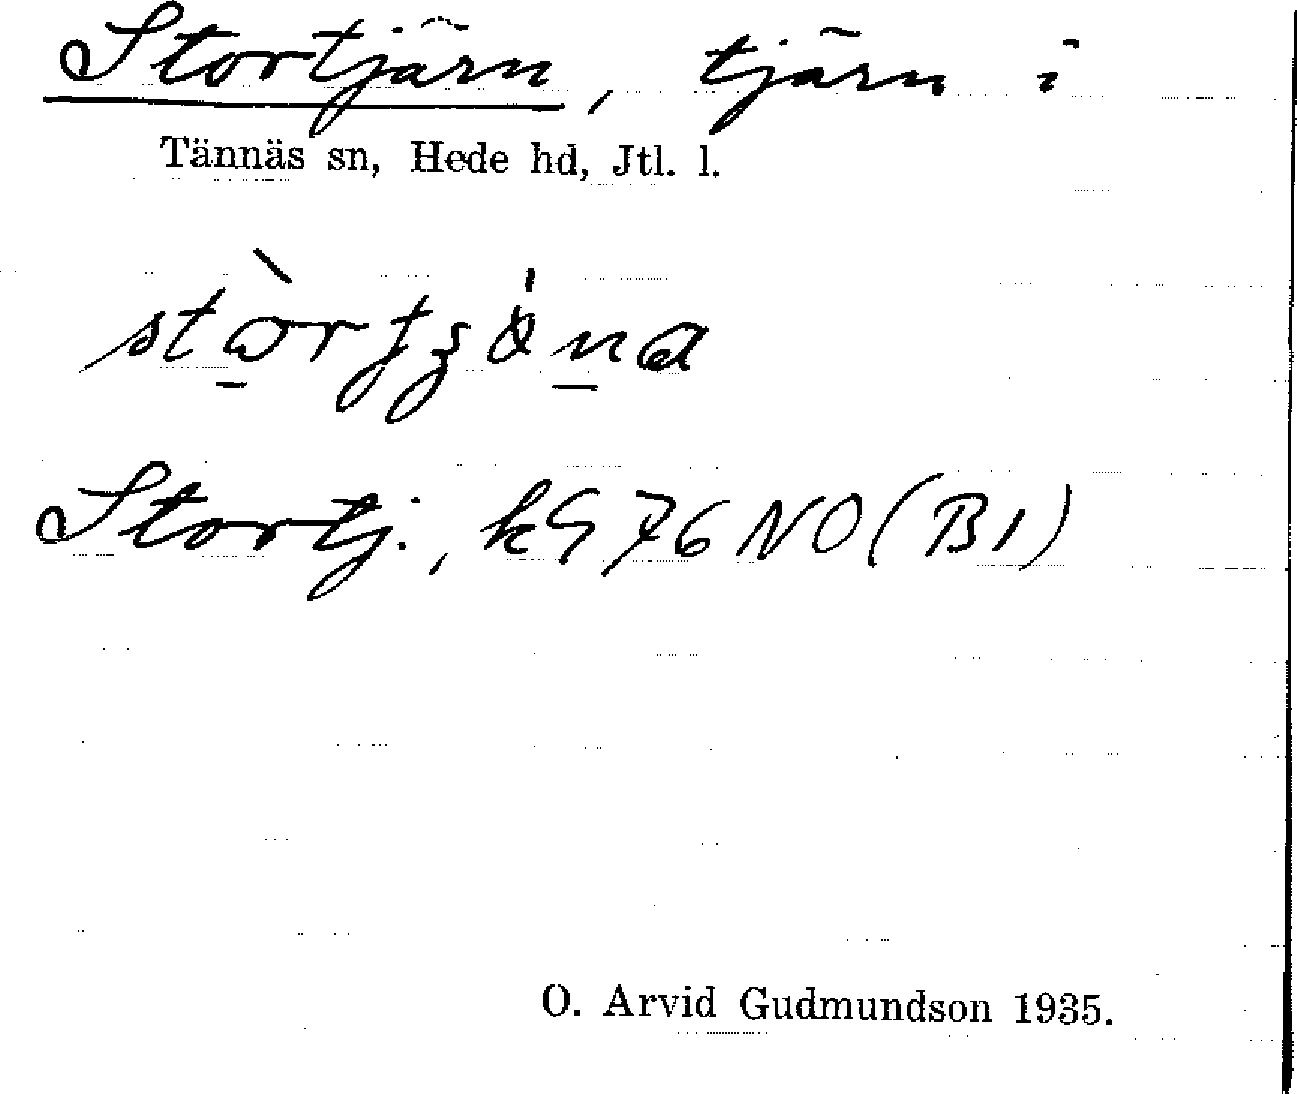 Stortjärn, tjärn i
Tännäs sn, Hede hd, Jtl. l.
Stortj., kG 76 NO (B1)
O. Arvid Gudmundson 1935.